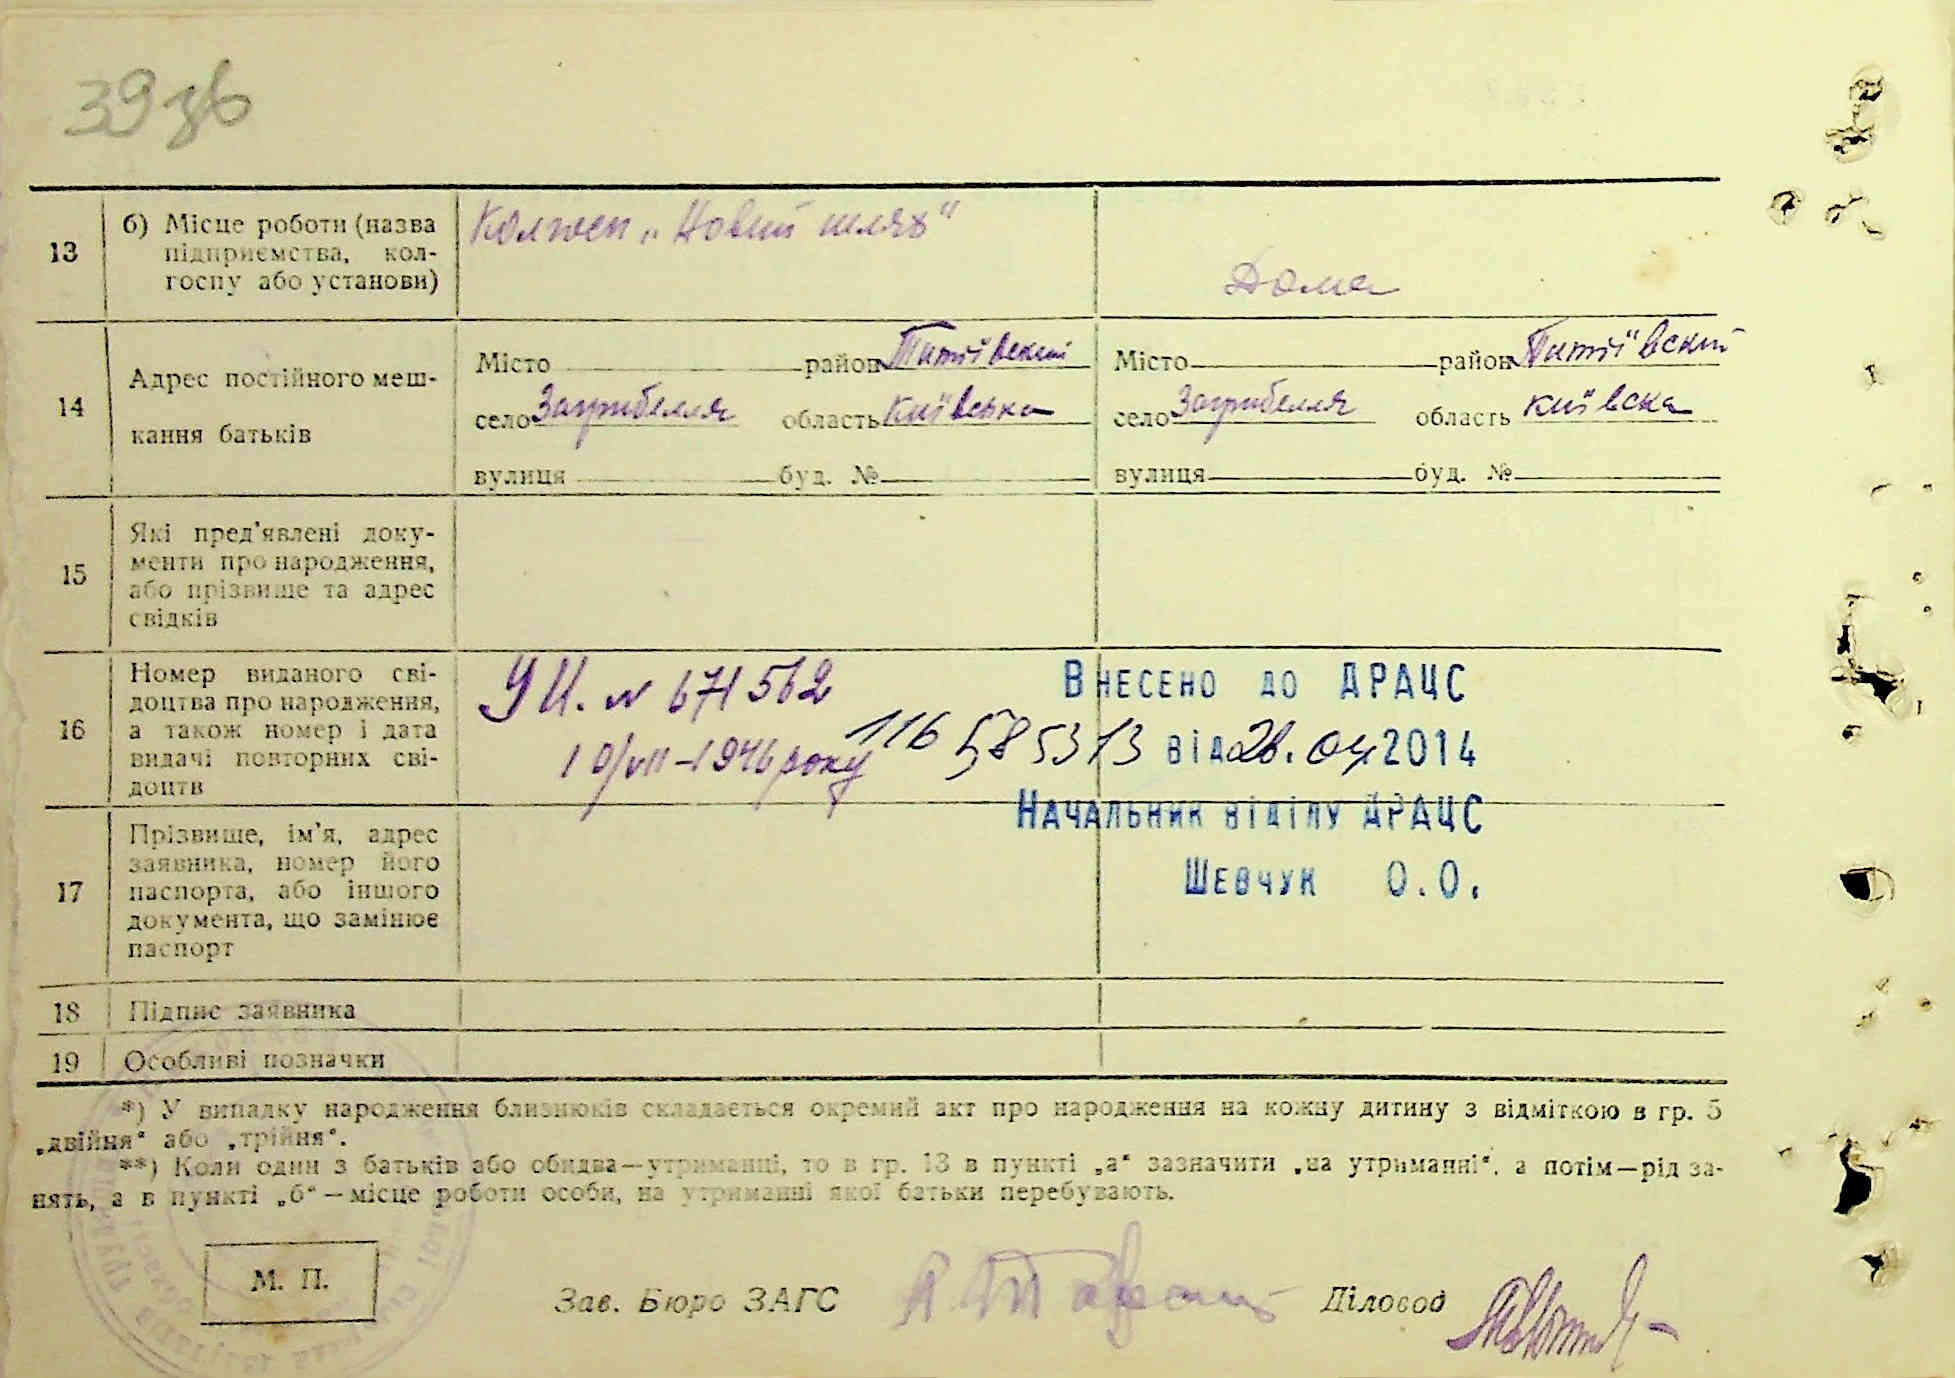 39 зв
13
б) Місце роботи (назва
підприємства, кол-
госпу або установи)
Колхоз „Новий шлях"
Дома
14
Адрес постійного меш-
кання батьків
Місто район Титіївский
село Загрибелля область Київська
вулиця буд. №
Місто район Титіївский
село Загрибелля область Київска
вулиця буд. №
15
Які пред'явлені доку-
менти про народження,
або прізвище та адрес
свідків
16
Номер виданого сві-
доцтва про народження,
а також номер і дата
видачі повторних сві-
доцтв
УЦ. № 671562
10/VII-1946 року
Внесено до ДРАЦС
116 585313 від 28.04.2014
Начальник відділу ДРАЦС
Шевчук О.О.
17
Прізвище, ім'я, адрес
заявника, номер його
паспорта, або іншого
документа, що замінює
паспорт
18
Підпис заявника
19
Особливі позначки
*) У випадку народження близнюків складається окремий акт про народження на кожну дитину з відміткою в гр. 5
„двійня" або „трійня".
**) Коли один з батьків або обидва—утриманці, то в гр. 13 в пункті „а" зазначити „на утриманні", а потім—рід за-
нять, а в пункті „б"—місце роботи особи, на утриманні якої батьки перебувають.
М. П.
Зав. Бюро ЗАГС
Діловод